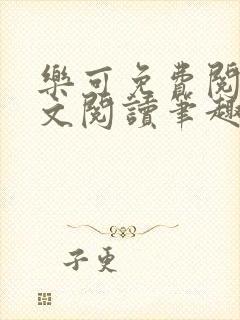 樂可免費閱
文閱讀筆趣
子更